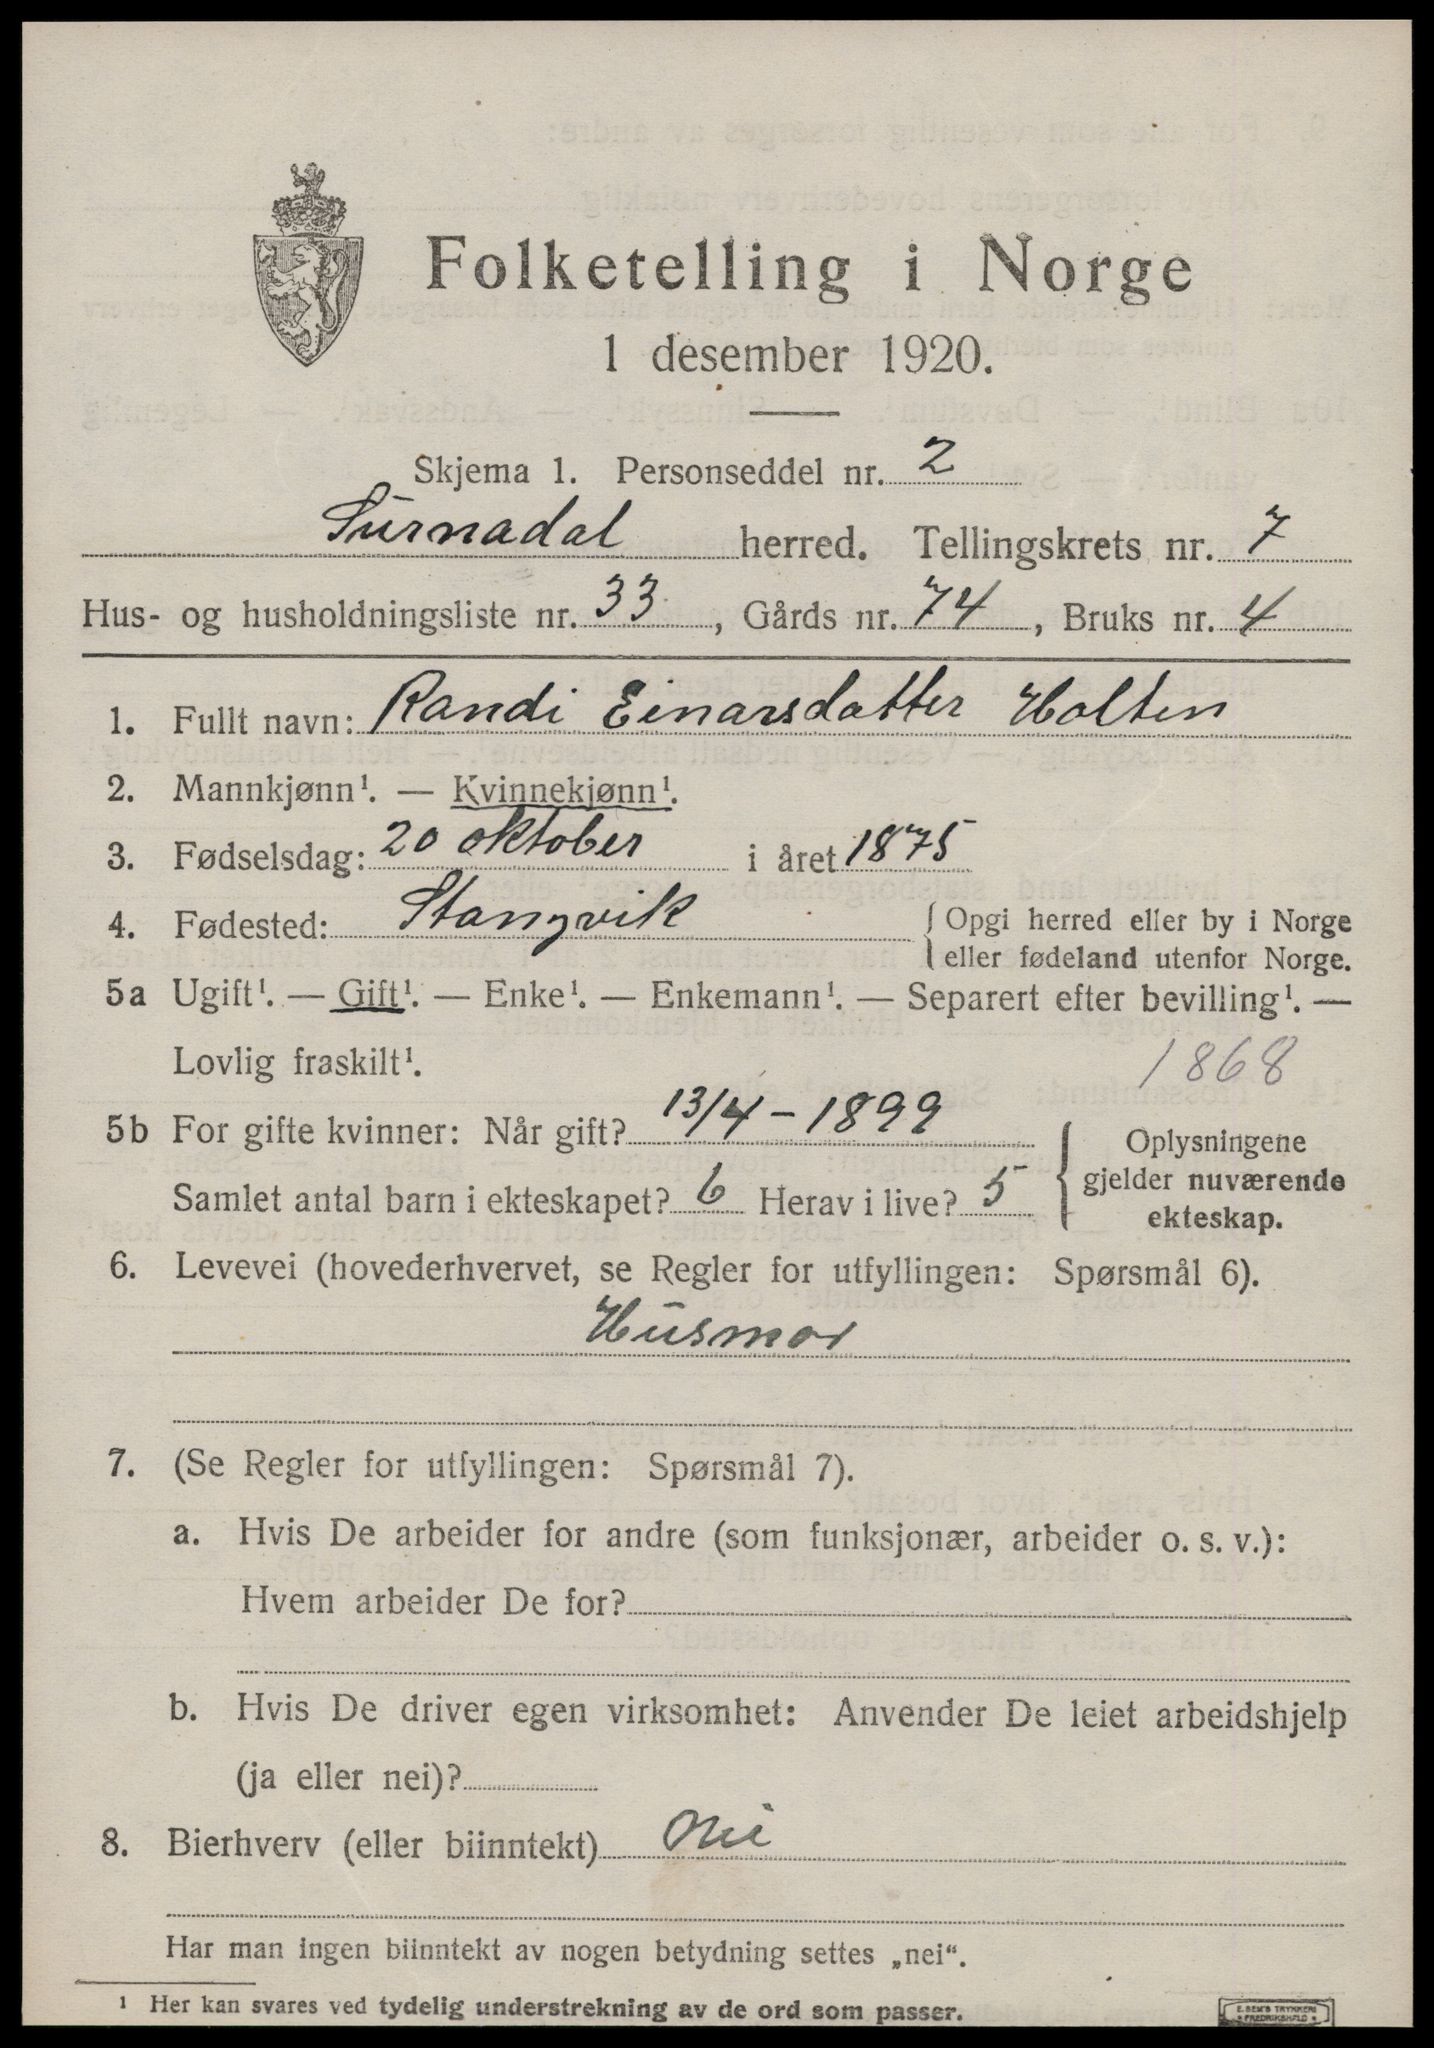 Folketelling i Norge
1 desember 1920.
Skjema 1. Personseddel nr. 2
Surnadal herred. Tellingskrets nr. 7
Hus- og husholdningsliste nr. 33, Gårds nr. 74, Bruks nr. 4
1. Fullt navn: Randi Einarsdatter Holten
2. Mannkjønn¹. — Kvinnekjønn¹.
3. Fødselsdag: 20 oktober i året 1875
4. Fødested: Stangvik { Opgi herred eller by i Norge
eller fødeland utenfor Norge.
5a Ugift¹. — Gift¹. — Enke¹. — Enkemann¹. — Separert efter bevilling¹. —
Lovlig fraskilt¹. 1868
5b For gifte kvinner: Når gift? 13/4 - 1899
Samlet antal barn i ekteskapet? 6 Herav i live? 5
{ Oplysningene
gjelder nuværende
ekteskap.
6. Levevei (hovederhvervet, se Regler for utfyllingen: Spørsmål 6).
Husmor
7. (Se Regler for utfyllingen: Spørsmål 7).
a. Hvis De arbeider for andre (som funksjonær, arbeider o. s. v.):
Hvem arbeider De for?
b. Hvis De driver egen virksomhet: Anvender De leiet arbeidshjelp
(ja eller nei)?
8. Bierhverv (eller biinntekt) Nei
Har man ingen biinntekt av nogen betydning settes „nei“.
¹ Her kan svares ved tydelig understrekning av de ord som passer.
E. SEM'S TRYKKERI
FREDRIKSHALD